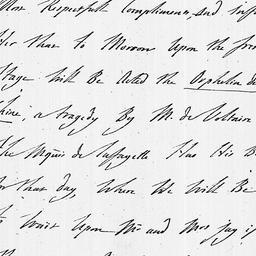 Most Respectfull Compliments, and
that to Morrow Upon the
Stage Will Be Acted the Orphelin
a tragedy By M. de Voltaire
The Mquis de Lafayette Has His
for that day, Where We Will Be
to Wait Upon Mr and Mrs Jay if